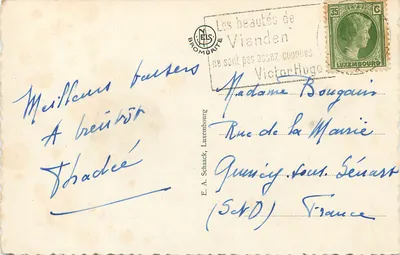 NELS
BROMURITE
Les beautés de
Vianden
ne sont pas assez connues
Victor Hugo
LUXEMBOURG
Meilleurs baisers
A bientôt
E. A. Schaack, Luxembourg
Madame Bougain
Rue de la Mairie
Quincy-sous-Sénart
(S&O) France